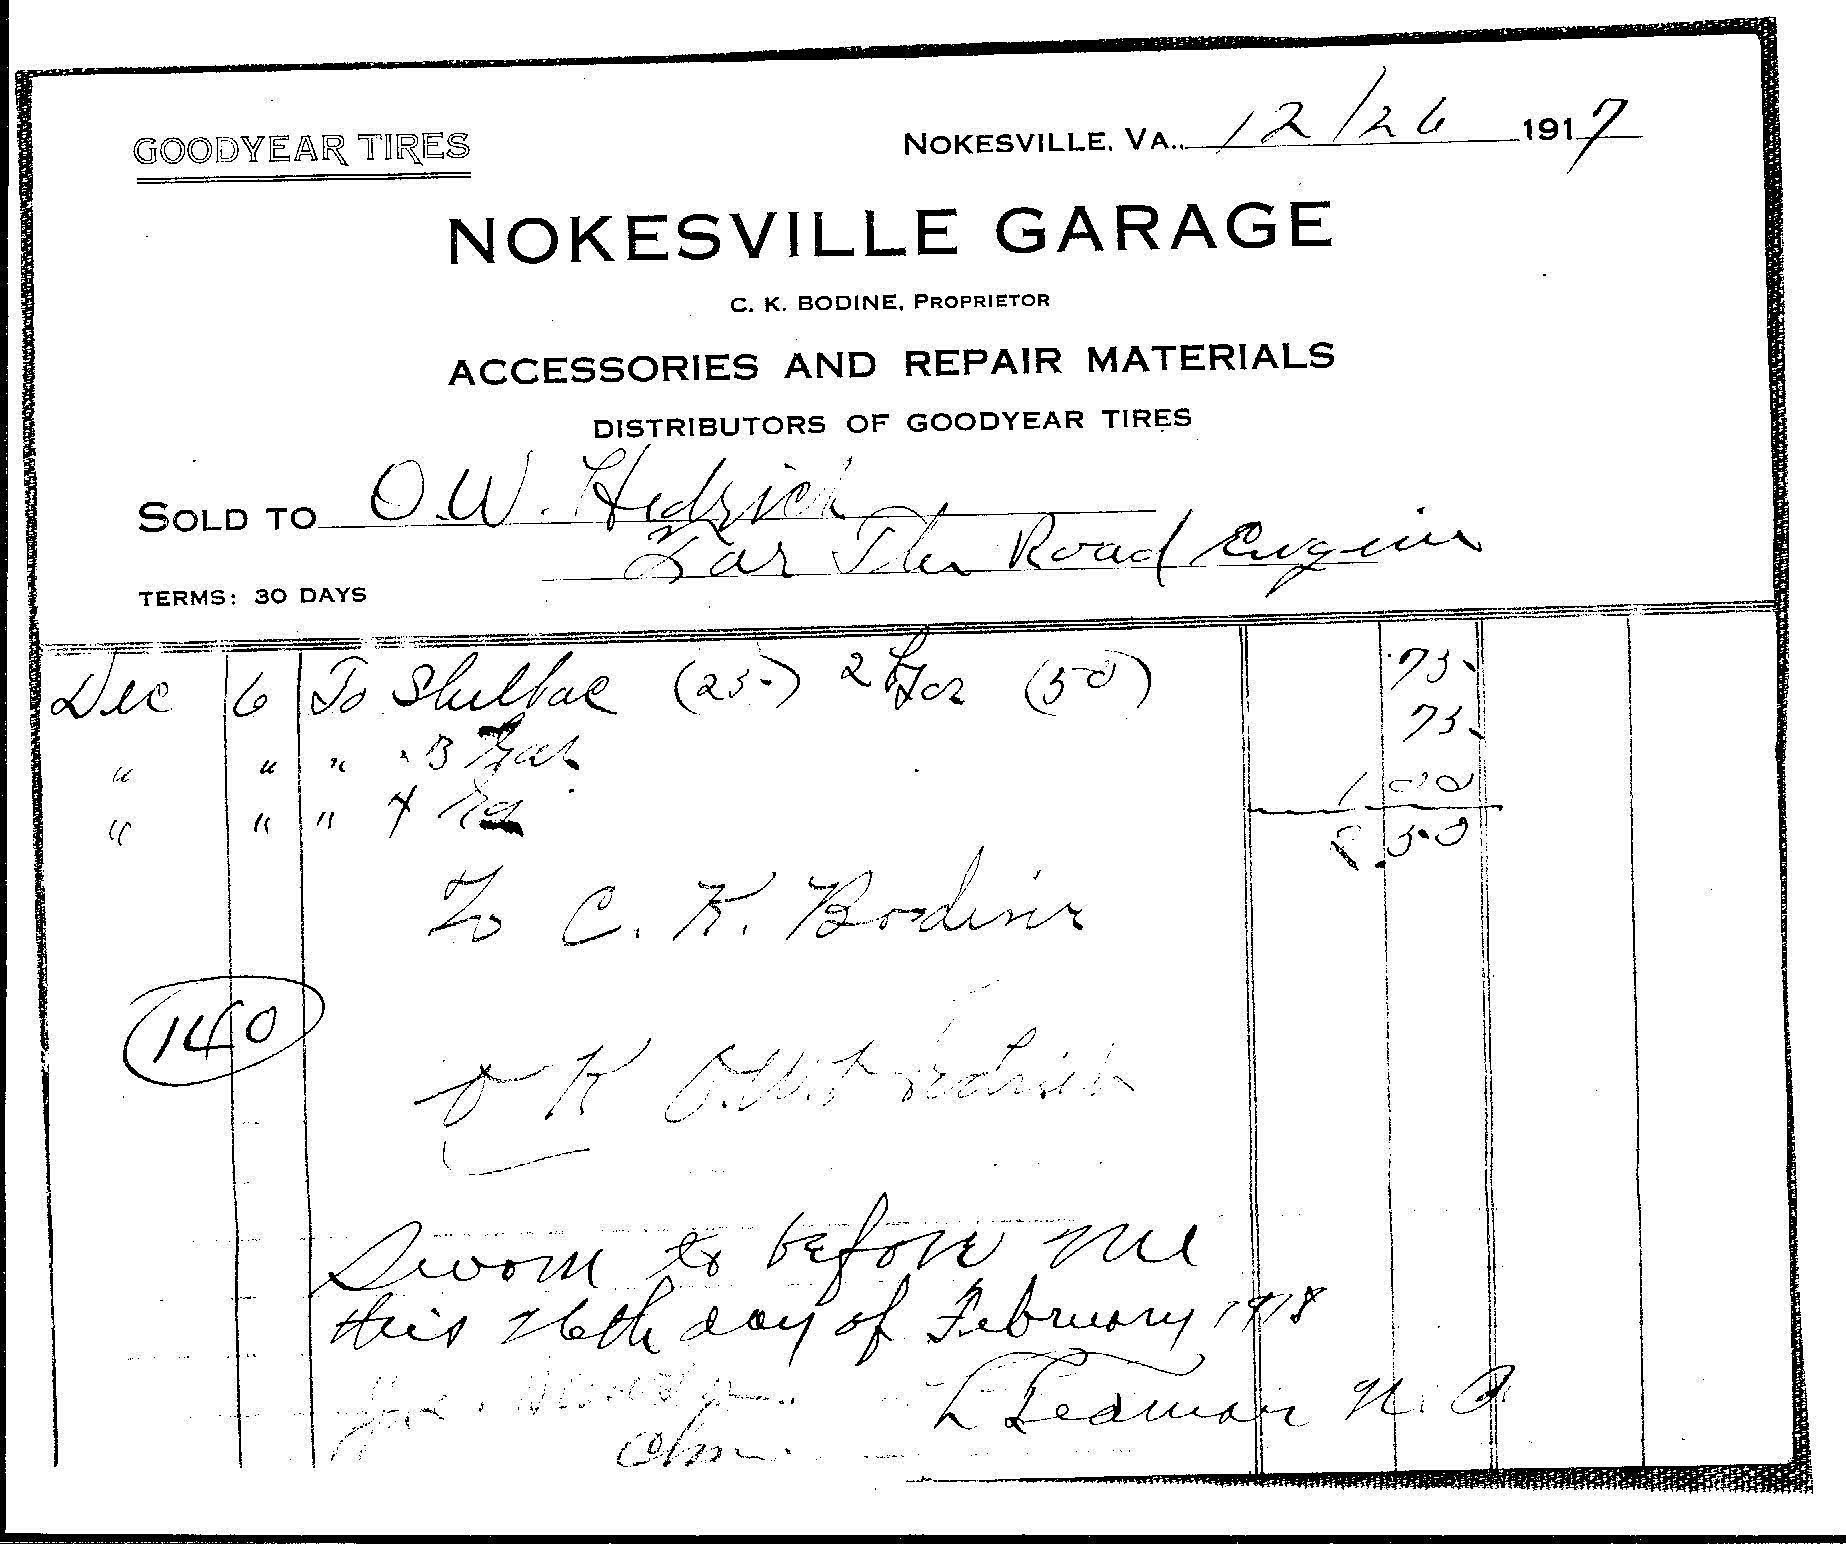 GOODYEAR TIRES
NOKESVILLE, VA., 12/26 1917
NOKESVILLE GARAGE
C. K. BODINE, PROPRIETOR
ACCESSORIES AND REPAIR MATERIALS
DISTRIBUTORS OF GOODYEAR TIRES
SOLD TO O.W. Hedrick
For The Road Engine
TERMS: 30 DAYS
Dec 6 To Shellac (25.) 2 (50) 75.
" " " 3 Gal 75.
" " " 4 1 00
2.50
To C. K. Bodine
140
O K O.W. Hedrick
Sworn to before me
this 26th day of February 1918
L Ledman N. P.
Chm.